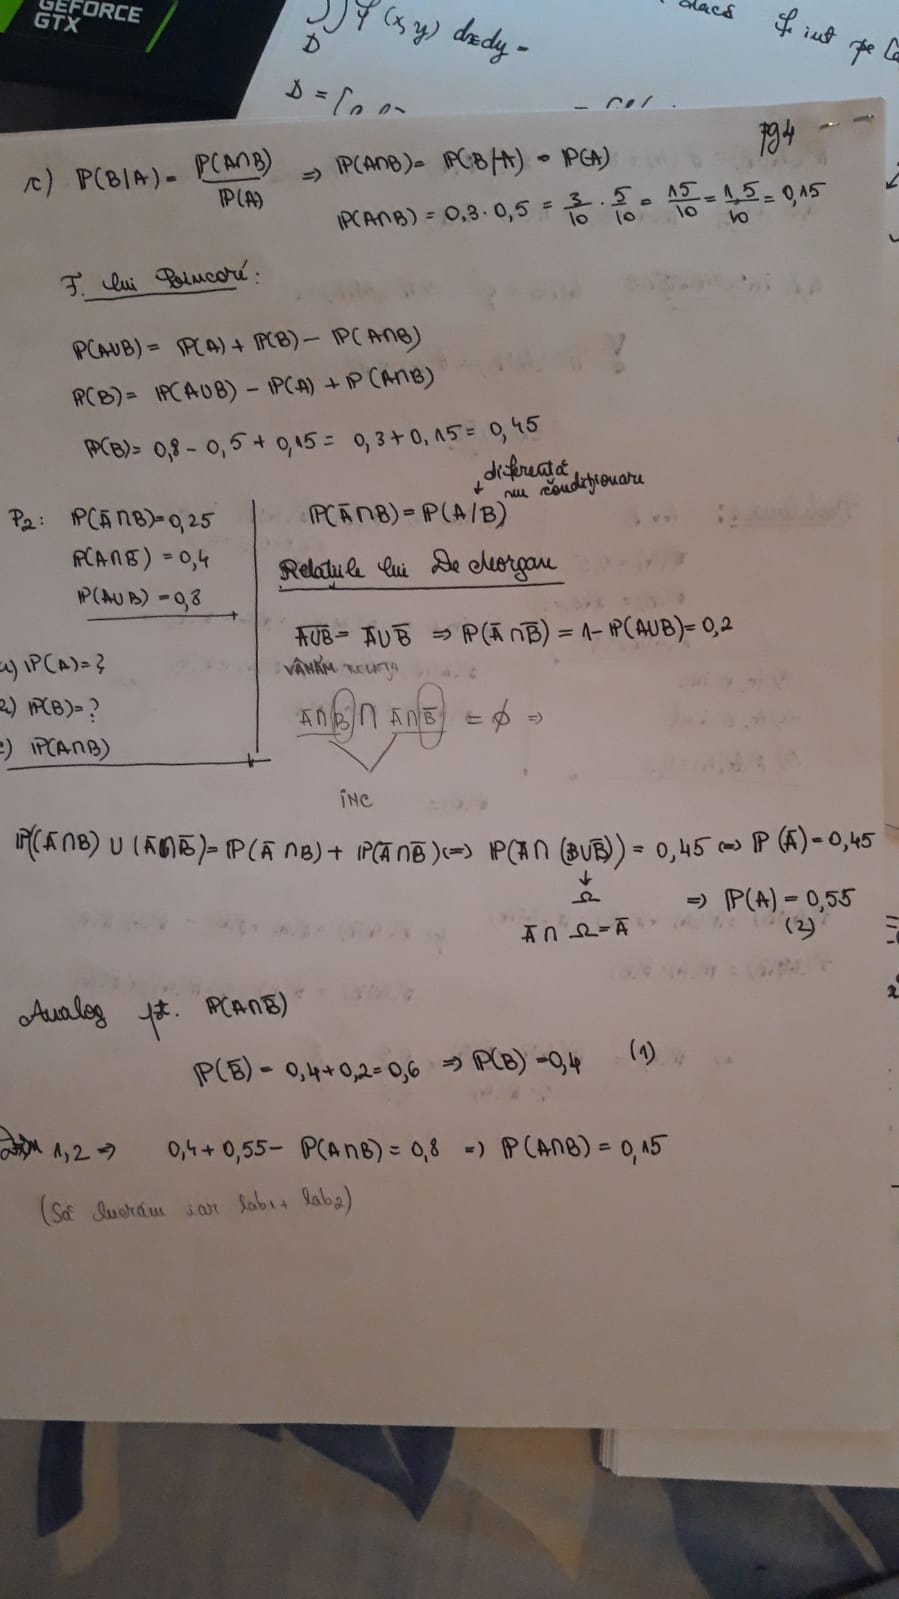 GEFORCE
GTX
∫∫ f(x,y) dxdy =
D
dacă f int pe
D = [
pg 4
c) P(B|A) = P(A∩B) / P(A) ⇒ P(A∩B) = P(B|A) · P(A)
P(A∩B) = 0,3 · 0,5 = 3/10 · 5/10 = 15/10 = 1,5/10 = 0,15
F. lui Poincaré:
P(A∪B) = P(A) + P(B) − P(A∩B)
P(B) = P(A∪B) − P(A) + P(A∩B)
P(B) = 0,8 − 0,5 + 0,15 = 0,3 + 0,15 = 0,45
diferență
↓ nu condiționare
P2: P(Ā∩B) = 0,25
P(A∩B̄) = 0,4
P(A∪B) = 0,8
a) P(A) = ?
P(B) = ?
) P(A∩B)
P(Ā∩B) = P(A/B)
Relațiile lui De Morgan
A∪B̅ = Ā∪B̄ ⇒ P(Ā∩B̄) = 1 − P(A∪B) = 0,2
VÂNĂM RELAȚII
Ā∩B ∩ Ā∩B̄ = ∅ ⇒
INC
P((Ā∩B) ∪ (Ā∩B̄) = P(Ā∩B) + P(Ā∩B̄) (=) P(Ā∩(B∪B̄)) = 0,45 (=) P(Ā) = 0,45
↓
Ω ⇒ P(A) = 0,55
Ā∩Ω = Ā (2)
Analog pt. P(A∩B̄)
P(B̄) = 0,4 + 0,2 = 0,6 ⇒ P(B) = 0,4 (1)
1,2 ⇒ 0,4 + 0,55 − P(A∩B) = 0,8 =) P(A∩B) = 0,15
(Să lucrăm iar lab1 + lab2)